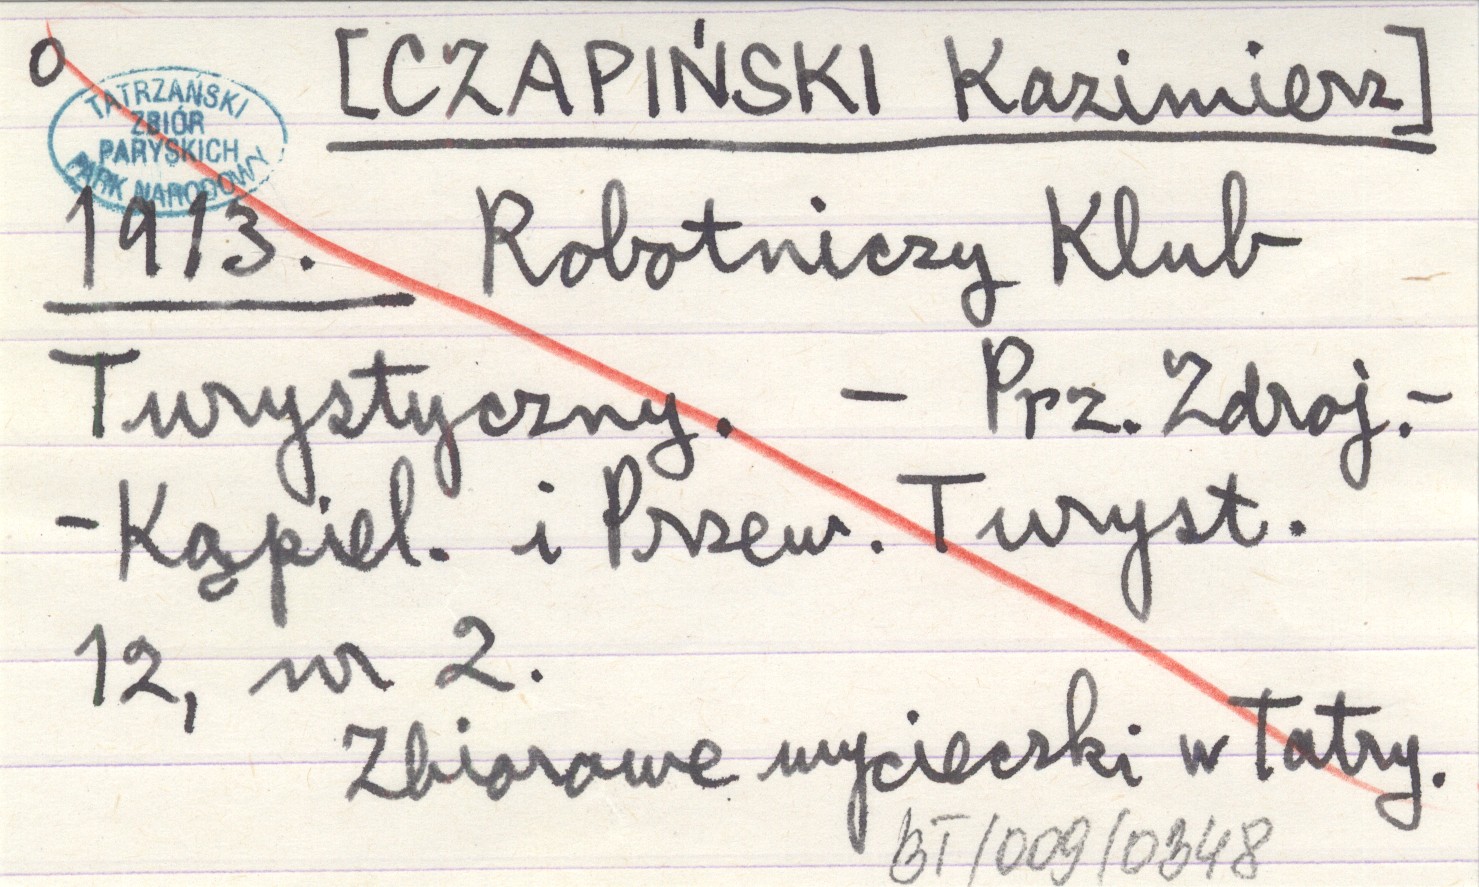 o [CZAPIŃSKI Kazimierz]
TATRZAŃSKI
ZBIÓR
PARYSKICH
PARK NARODOWY
1913. Robotniczy Klub
Turystyczny. — Prz. Zdroj.-
-Kąpiel. i Przew. Turyst.
12, nr 2.
Zbiorowe wycieczki w Tatry.
BT/009/0348